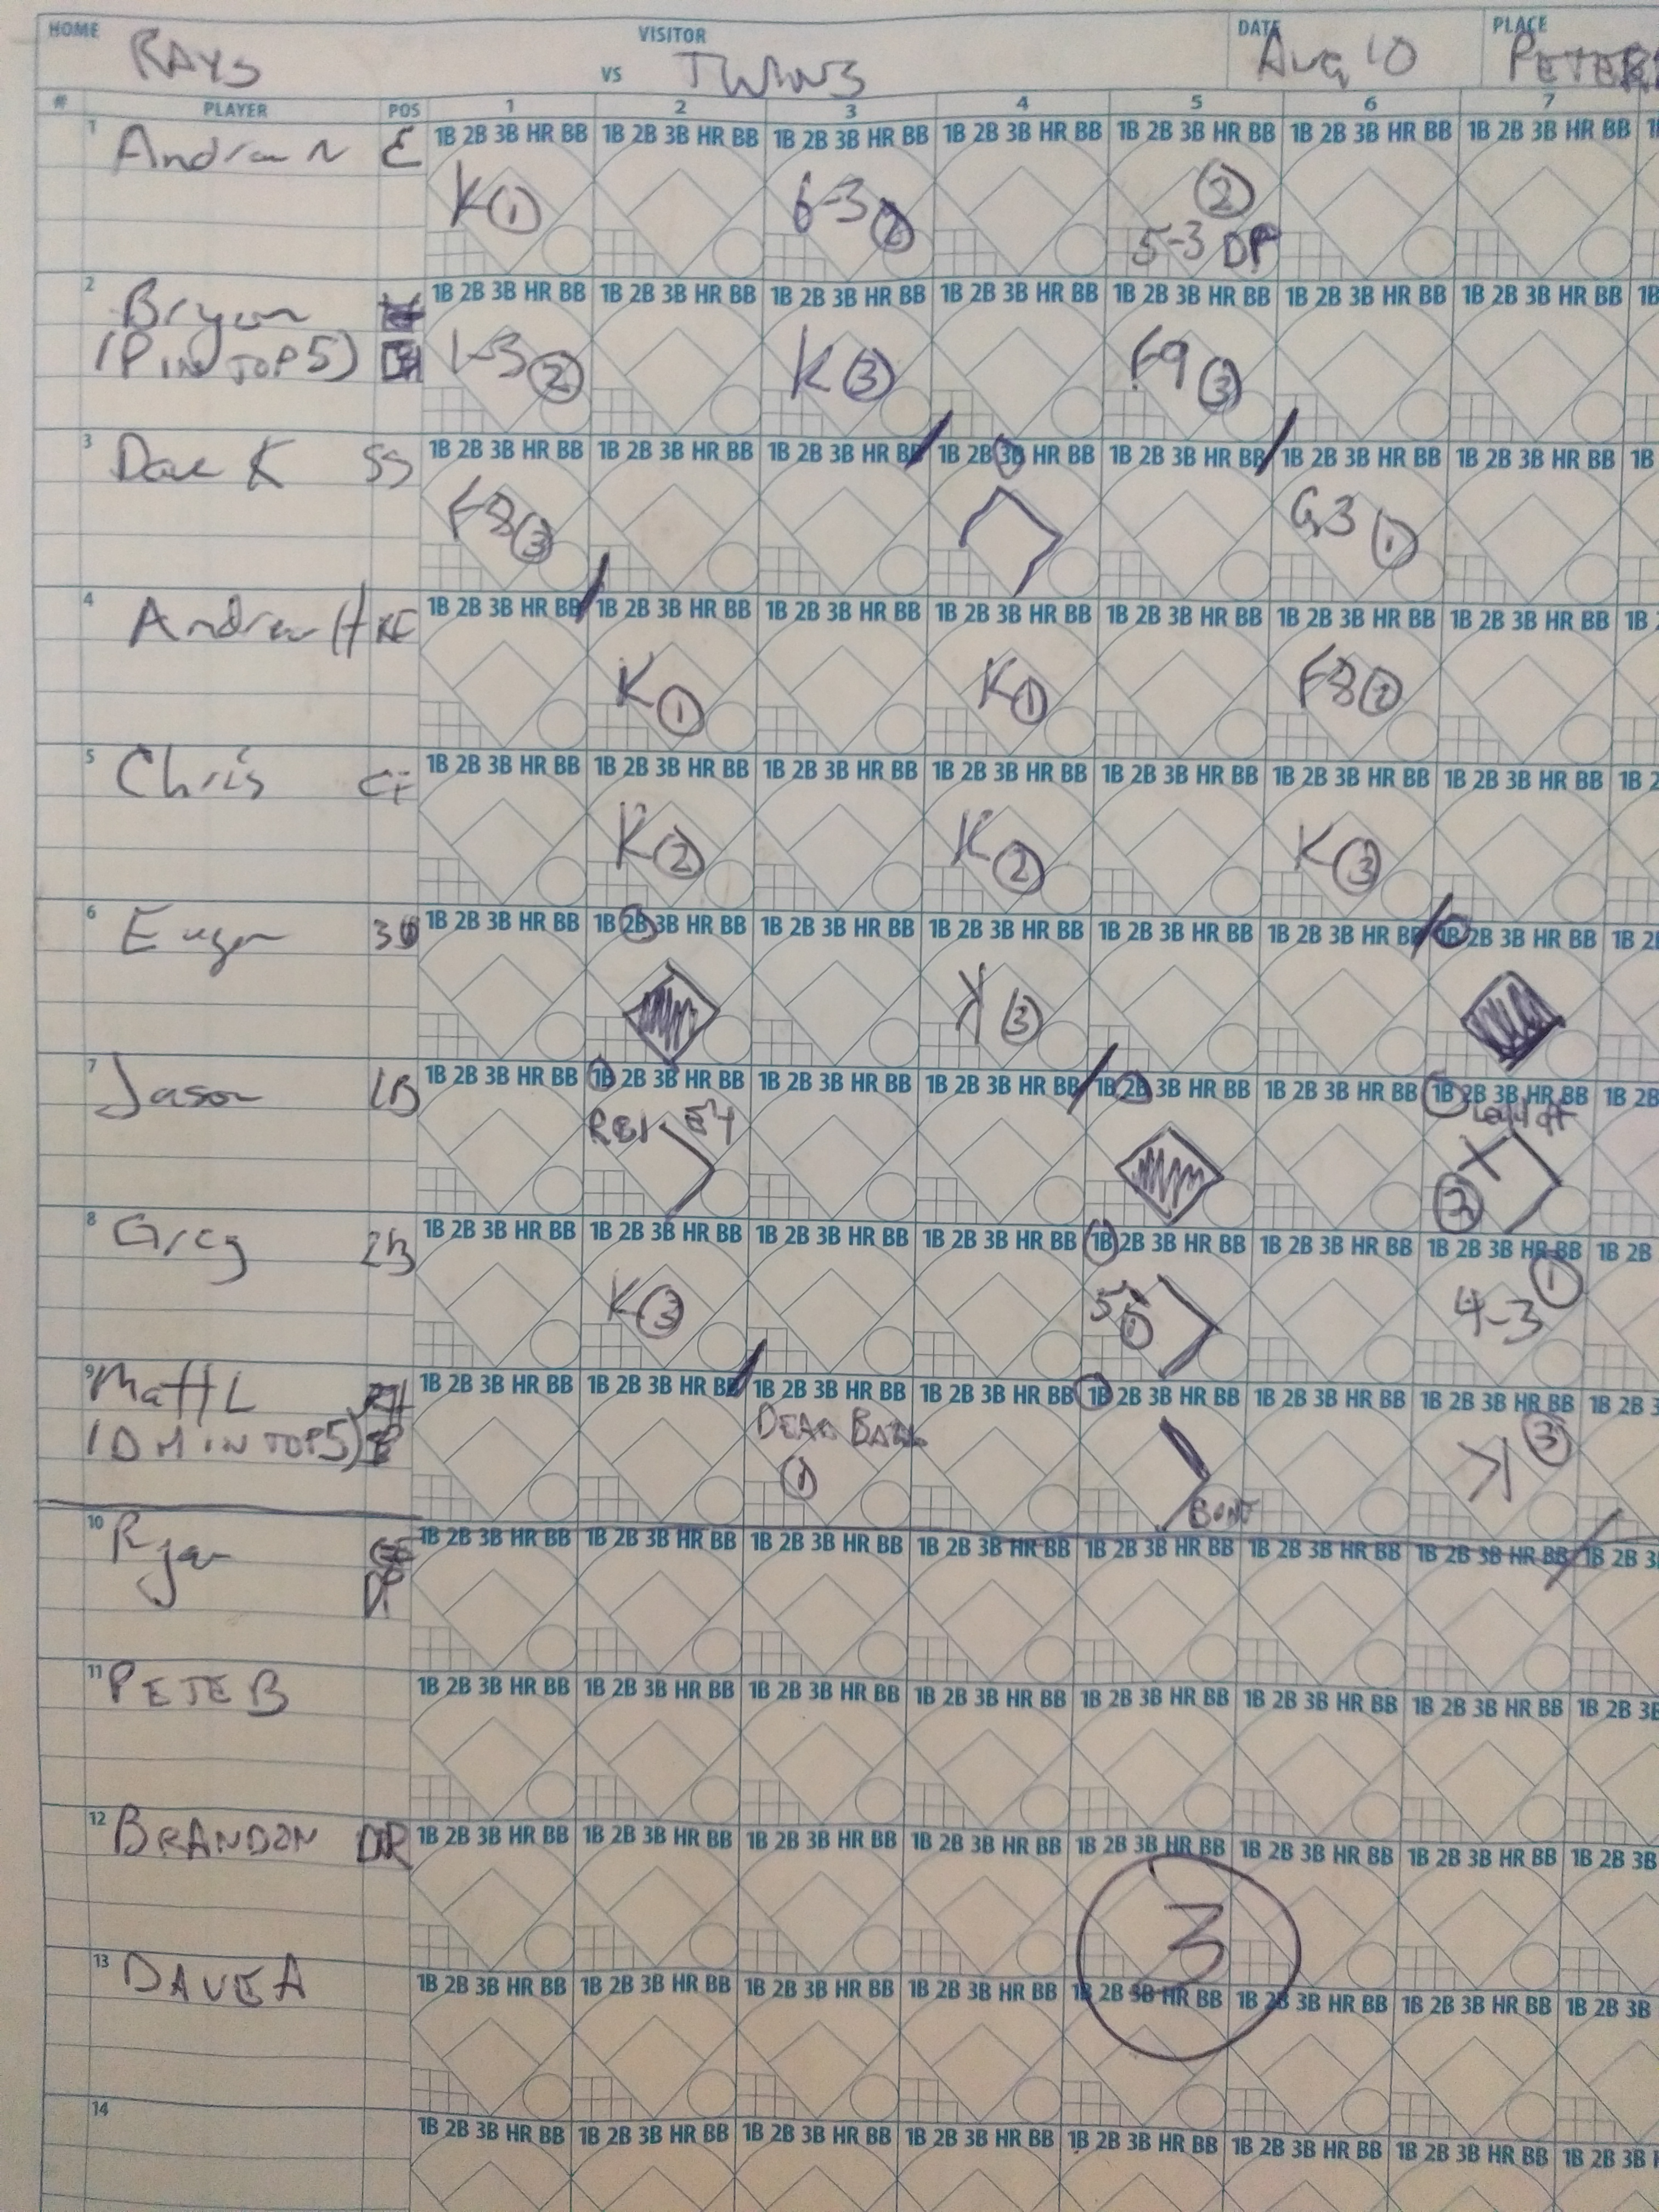 HOME RAYS VISITOR VS TWINS DATE Aug 10 PLACE
# PLAYER POS 1 2 3 4 5 6 7
1 1B 2B 3B HR BB 1B 2B 3B HR BB 1B 2B 3B HR BB 1B 2B 3B HR BB 1B 2B 3B HR BB 1B 2B 3B HR BB 1B 2B 3B HR BB
Andrew N
K 1 6-3 2 2
5-3 DP
2 1B 2B 3B HR BB 1B 2B 3B HR BB 1B 2B 3B HR BB 1B 2B 3B HR BB 1B 2B 3B HR BB 1B 2B 3B HR BB 1B 2B 3B HR BB 1B
Bryan
(P IN TOP 5) 1-3 2 K 3 F9 3
3 1B 2B 3B HR BB 1B 2B 3B HR BB 1B 2B 3B HR BB 1B 2B 3B HR BB 1B 2B 3B HR BB 1B 2B 3B HR BB 1B 2B 3B HR BB 1B
Dave K SS
F8 3 G3 1
4 1B 2B 3B HR BB 1B 2B 3B HR BB 1B 2B 3B HR BB 1B 2B 3B HR BB 1B 2B 3B HR BB 1B 2B 3B HR BB 1B 2B 3B HR BB 1B
Andrew H
K 1 K 1 F8 2
5 1B 2B 3B HR BB 1B 2B 3B HR BB 1B 2B 3B HR BB 1B 2B 3B HR BB 1B 2B 3B HR BB 1B 2B 3B HR BB 1B 2B 3B HR BB 1B 2
Chris CF
K 2 K 2 K 3
6 1B 2B 3B HR BB 1B 2B 3B HR BB 1B 2B 3B HR BB 1B 2B 3B HR BB 1B 2B 3B HR BB 1B 2B 3B HR BB 1B 2B 3B HR BB 1B 2
3B
K 3
7 1B 2B 3B HR BB 1B 2B 3B HR BB 1B 2B 3B HR BB 1B 2B 3B HR BB 1B 2B 3B HR BB 1B 2B 3B HR BB 1B 2B 3B HR BB 1B 2B
Jason 1B
RBI
2
8 1B 2B 3B HR BB 1B 2B 3B HR BB 1B 2B 3B HR BB 1B 2B 3B HR BB 1B 2B 3B HR BB 1B 2B 3B HR BB 1B 2B 3B HR BB 1B 2B
Greg 2B
K 3 1 4-3 1
9 1B 2B 3B HR BB 1B 2B 3B HR BB 1B 2B 3B HR BB 1B 2B 3B HR BB 1B 2B 3B HR BB 1B 2B 3B HR BB 1B 2B 3B HR BB 1B 2B 3
Matt L DEAD BALL
(DH IN TOP 5) 1 K 3
BUNT
10 1B 2B 3B HR BB 1B 2B 3B HR BB 1B 2B 3B HR BB 1B 2B 3B HR BB 1B 2B 3B HR BB 1B 2B 3B HR BB 1B 2B 3B HR BB 1B 2B 3
Ryan
11 1B 2B 3B HR BB 1B 2B 3B HR BB 1B 2B 3B HR BB 1B 2B 3B HR BB 1B 2B 3B HR BB 1B 2B 3B HR BB 1B 2B 3B HR BB 1B 2B 3B
PETE B
12 1B 2B 3B HR BB 1B 2B 3B HR BB 1B 2B 3B HR BB 1B 2B 3B HR BB 1B 2B 3B HR BB 1B 2B 3B HR BB 1B 2B 3B HR BB 1B 2B 3B
BRANDON
3
13 1B 2B 3B HR BB 1B 2B 3B HR BB 1B 2B 3B HR BB 1B 2B 3B HR BB 1B 2B 3B HR BB 1B 2B 3B HR BB 1B 2B 3B HR BB 1B 2B 3B
DAVE A
14 1B 2B 3B HR BB 1B 2B 3B HR BB 1B 2B 3B HR BB 1B 2B 3B HR BB 1B 2B 3B HR BB 1B 2B 3B HR BB 1B 2B 3B HR BB 1B 2B 3B